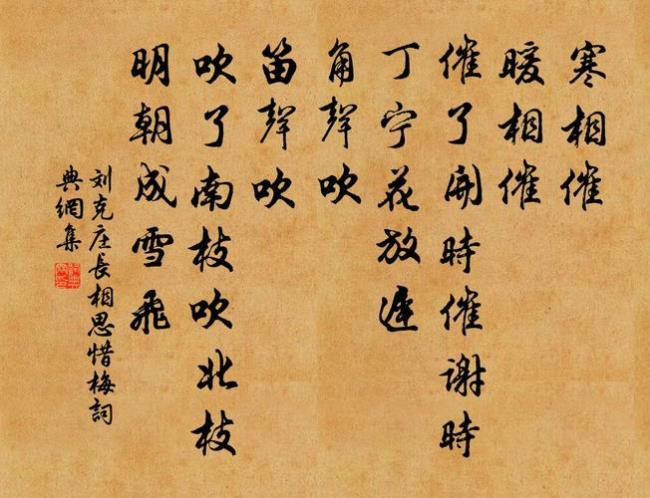 寒相催
暖相催
催了開時催謝時
丁宁花放遲
角聲吹
笛聲吹
吹了南枝吹北枝
明朝成雪飛
刘克庄長相思惜梅詞
典網集